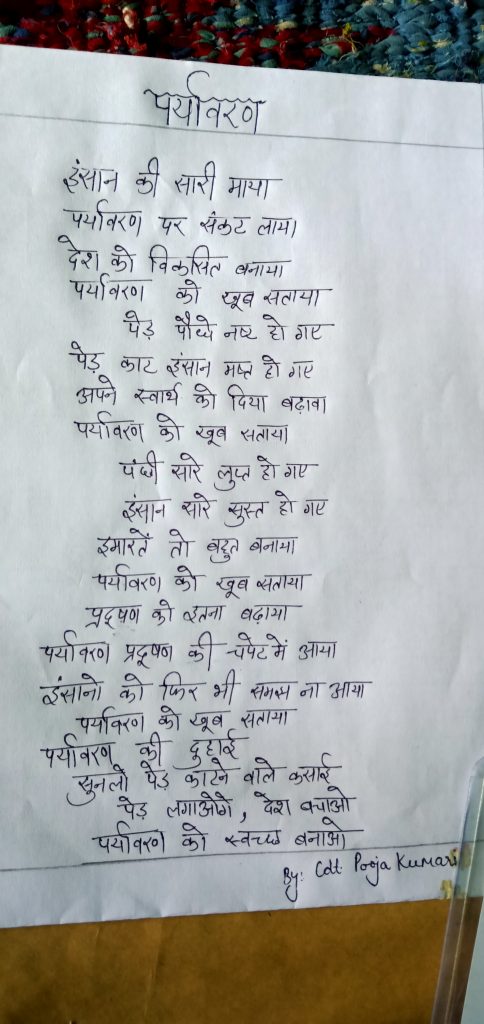 पर्यावरण
इंसान की सारी माया
पर्यावरण पर संकट लाया
देश को विकसित बनाया
पर्यावरण को खूब सताया
पेड़ पौध्ये नष्ट हो गए
पेड़ काट इंसान मष्त हो गए
अपने स्वार्थ को दिया बढ़ावा
पर्यावरण को खूब सताया
पंछी सारे लुप्त हो गए
इंसान सारे सुस्त हो गए
इमारतें तो बहुत बनाया
पर्यावरण को खूब सताया
प्रदूषण को इतना बढ़ाया
पर्यावरण प्रदूषण की चपेट में आया
इंसानो को फिर भी समझ ना आया
पर्यावरण को खूब सताया
पर्यावरण की दुहाई
सुनलो पेड़ काटने वाले कसाई
पेड़ लगाओगे, देश बचाओ
पर्यावरण को स्वच्छ बनाओ
By: Cdt Pooja Kumari